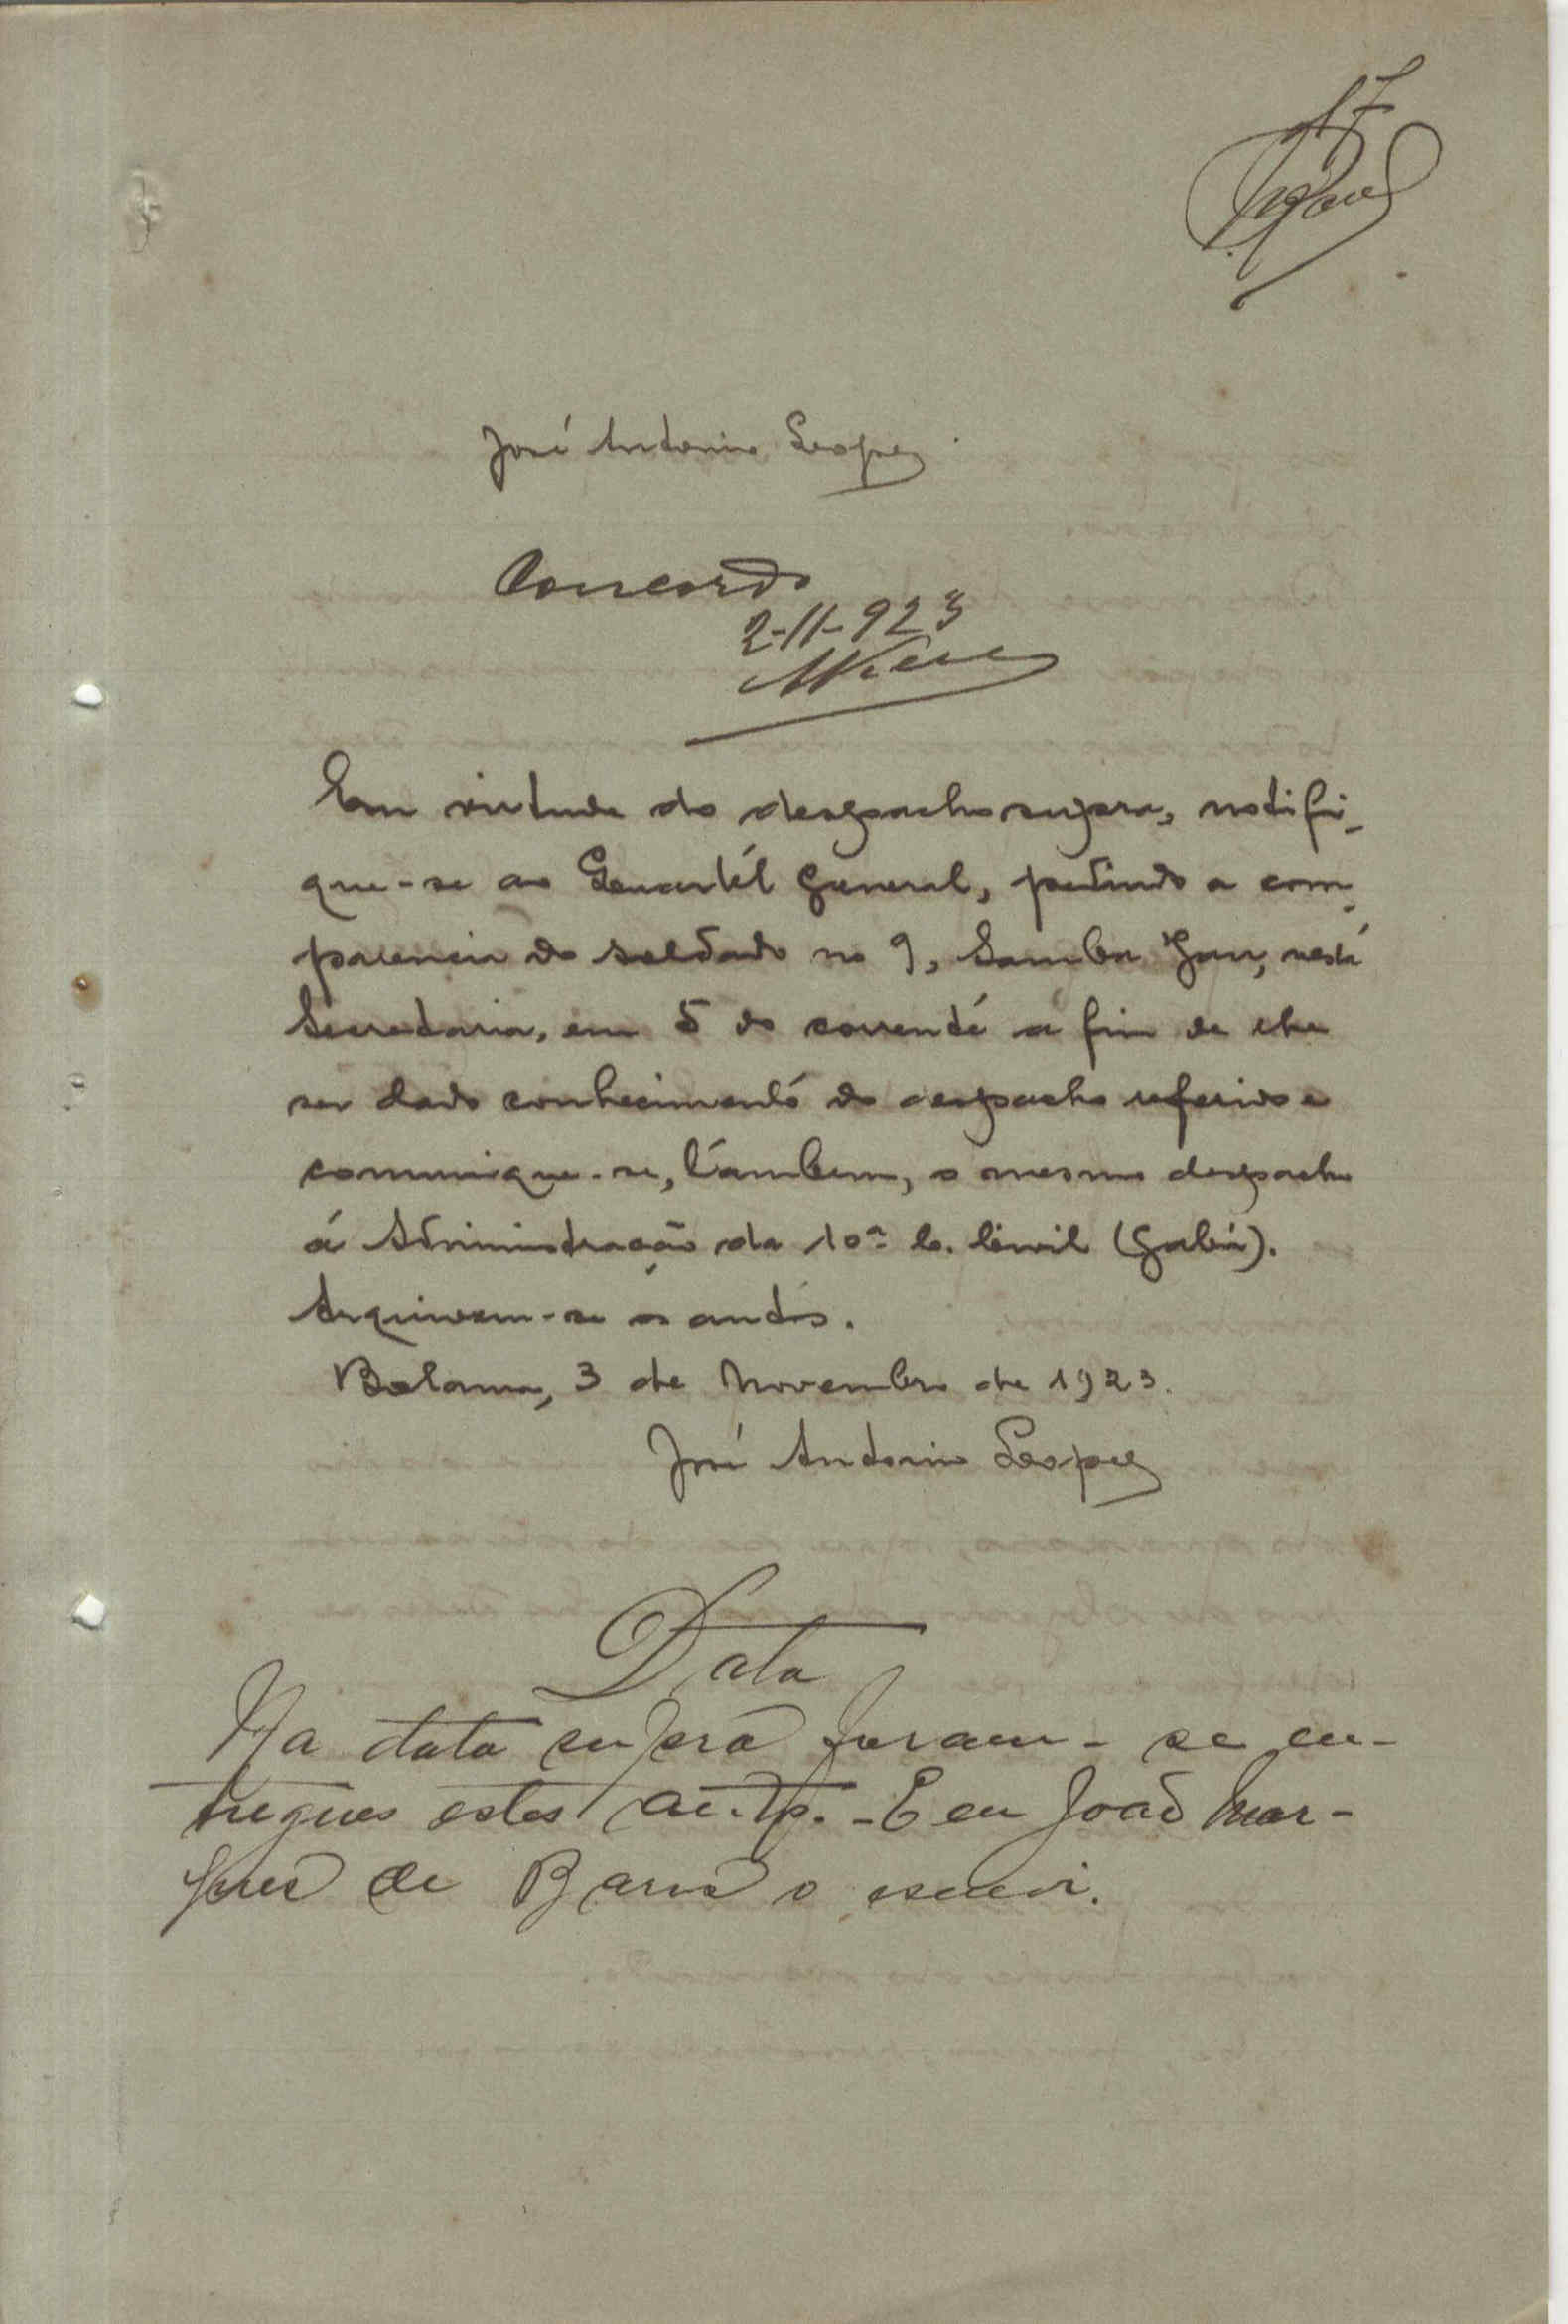 17
José Antonio Lopes
Concordo
2-11-923
Em virtude do despacho supra, notifi-
que-se ao Quartél General, pedindo a com-
parencia do soldado no 9, Samba Jau, nesta
Secretaria, em 5 do corrente a fim de lhe
ser dado conhecimento do despacho referido e
comunique-se, tambem, o mesmo despacho
á Administração da 10ª C. Civil (Gabú).
Arquivem-se os autos.
Bolama, 3 de Novembro de 1923.
José Antonio Lopes
Data
Na data supra foram-se en-
tregues estes autos. - E eu João Mar-
ques de Barros o escrevi.